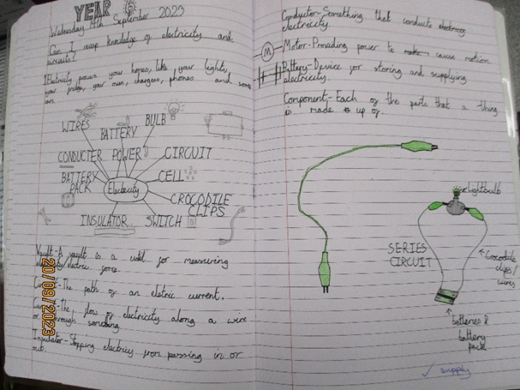 YEAR 6
Wednesday September 2023
Can I map knowledge of electricity and
circuits?
Electricity powers your homes, like your lights,
your fridge, your oven, chargers, phones and some
cars.
WIRES
BATTERY
BULB
CONDUCTER
POWER
CIRCUIT
BATTERY
PACK
Electricity
CELL
CROCODILE
CLIPS
INSULATOR
SWITCH
is a unit for measuring
electric force.
The path of an eletric current.
The flow of electricity along a wire
or through something.
Stopping electricity from passing in or
out.
20/09/2023
Conductor-Something that conducts electricity
M
Motor-Providing power to make cause motion
Battery-Device for storing and supplying
electricity.
Component-Each of the parts that a thing
is made up of.
lightbulb
SERIES
CIRCUIT
Crocodile
clips/
wires
batteries &
battery
pack
✓ supply